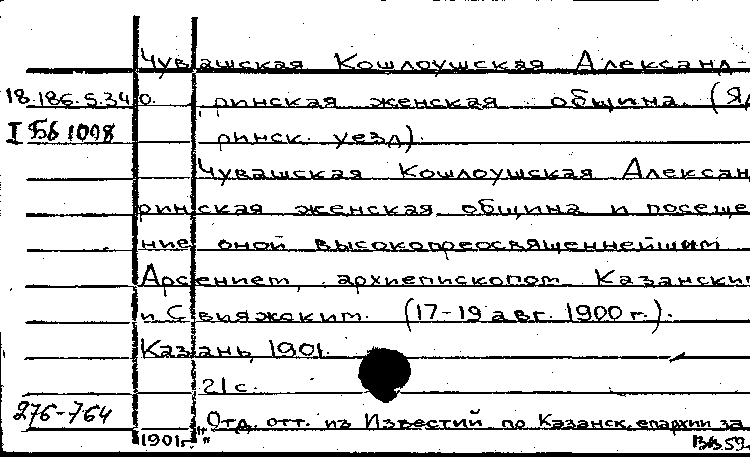 Чувашская Кошлоушская Александ-
18.186.5.340. ринская женская община (Яд
I Бб 1098 ринск. уезд).
Чувашская Кошлоушская Алексан
ринская женская община и посеще
ние оной высокопреосвященнейшим
Арсением, архиепископом Казанским
и Свияжским. (17-19 авг. 1900 г.).
Казань, 1901.
21 с.
276-764 Отд. отт. из Известий по Казанск. епархии за
1901г."